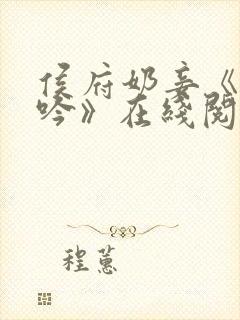 侯府奶妾《
吟》在线阅
程蕙